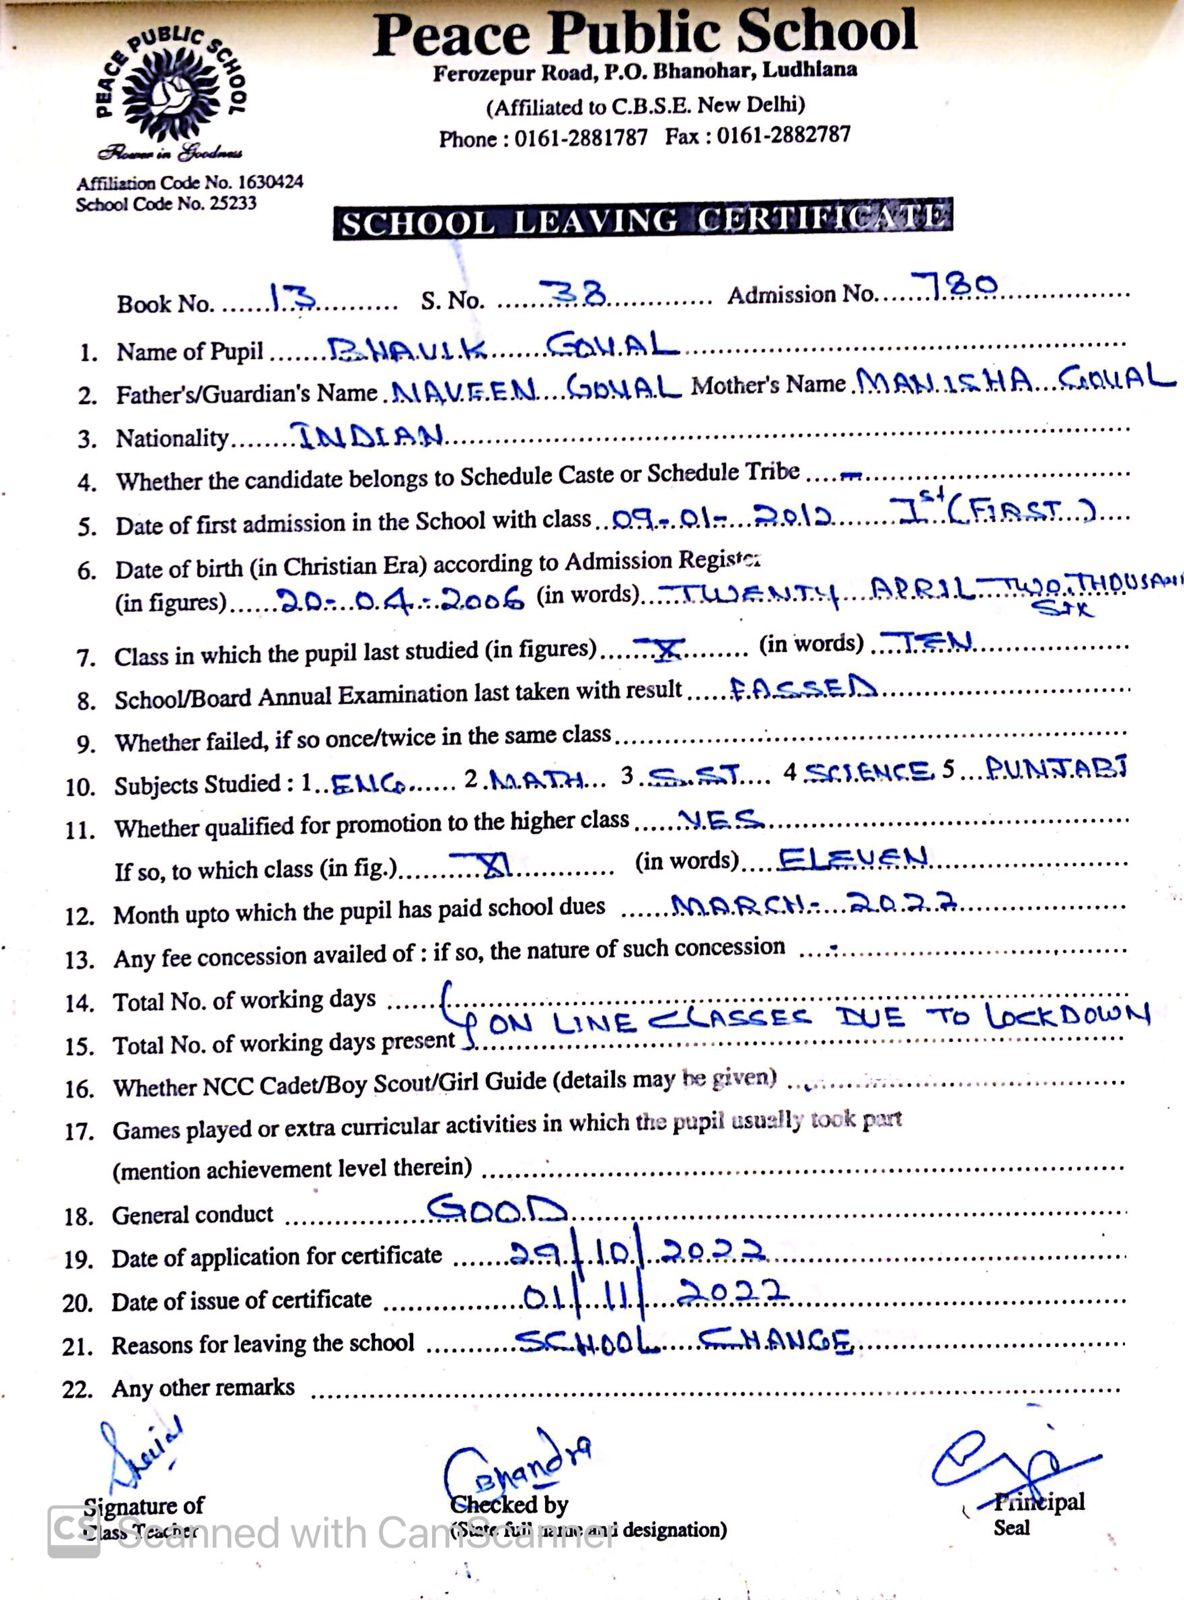 Peace Public School
Ferozepur Road, P.O. Bhanohar, Ludhiana
(Affiliated to C.B.S.E. New Delhi)
Phone : 0161-2881787 Fax : 0161-2882787
PEACE PUBLIC SCHOOL
Flower in Goodness
Affiliation Code No. 1630424
School Code No. 25233
SCHOOL LEAVING CERTIFICATE
Book No. 13 S. No. 38 Admission No. 780
1. Name of Pupil BHAVIK GOYAL
2. Father's/Guardian's Name NAVEEN GOYAL Mother's Name MANISHA GOYAL
3. Nationality INDIAN
4. Whether the candidate belongs to Schedule Caste or Schedule Tribe –
5. Date of first admission in the School with class 09-01-2012 Ist (FIRST)
6. Date of birth (in Christian Era) according to Admission Register
(in figures) 20-04-2006 (in words) TWENTY APRIL TWO THOUSAND
SIX
7. Class in which the pupil last studied (in figures) X (in words) TEN
8. School/Board Annual Examination last taken with result PASSED
9. Whether failed, if so once/twice in the same class
10. Subjects Studied : 1 ENG 2 MATH 3 S.ST 4 SCIENCE 5 PUNJABI
11. Whether qualified for promotion to the higher class YES
If so, to which class (in fig.) XI (in words) ELEVEN
12. Month upto which the pupil has paid school dues MARCH-2022
13. Any fee concession availed of : if so, the nature of such concession -
14. Total No. of working days
ON LINE CLASSES DUE TO LOCKDOWN
15. Total No. of working days present
16. Whether NCC Cadet/Boy Scout/Girl Guide (details may be given)
17. Games played or extra curricular activities in which the pupil usually took part
(mention achievement level therein)
18. General conduct GOOD
19. Date of application for certificate 29/10/2022
20. Date of issue of certificate 01/11/2022
21. Reasons for leaving the school SCHOOL CHANGE
22. Any other remarks
Chandra
Signature of Checked by Principal
Class Teacher (State full name and designation) Seal
CS Scanned with CamScanner